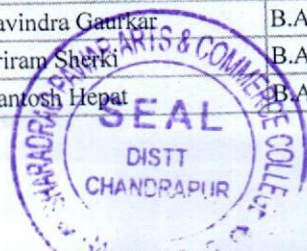 avindra Gaurkar B.A
riram Sherki B.A
antosh Hepat B.A
SHARADRAO PAWAR ARTS & COMMERCE COLLEGE
SEAL
DISTT
CHANDRAPUR